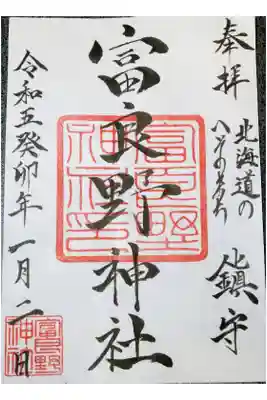 奉拝
北海道の
鎮守
富良野神社
富良野
神社印
令和五癸卯年一月二日
富良野
神社